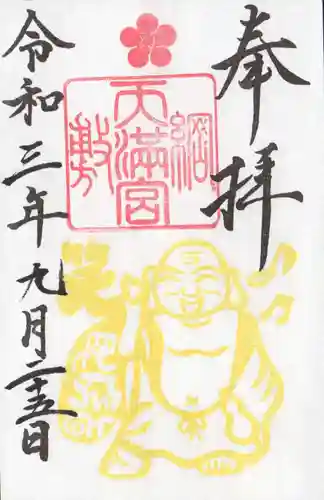 奉拝
綱敷
天満宮
令和三年九月二十五日